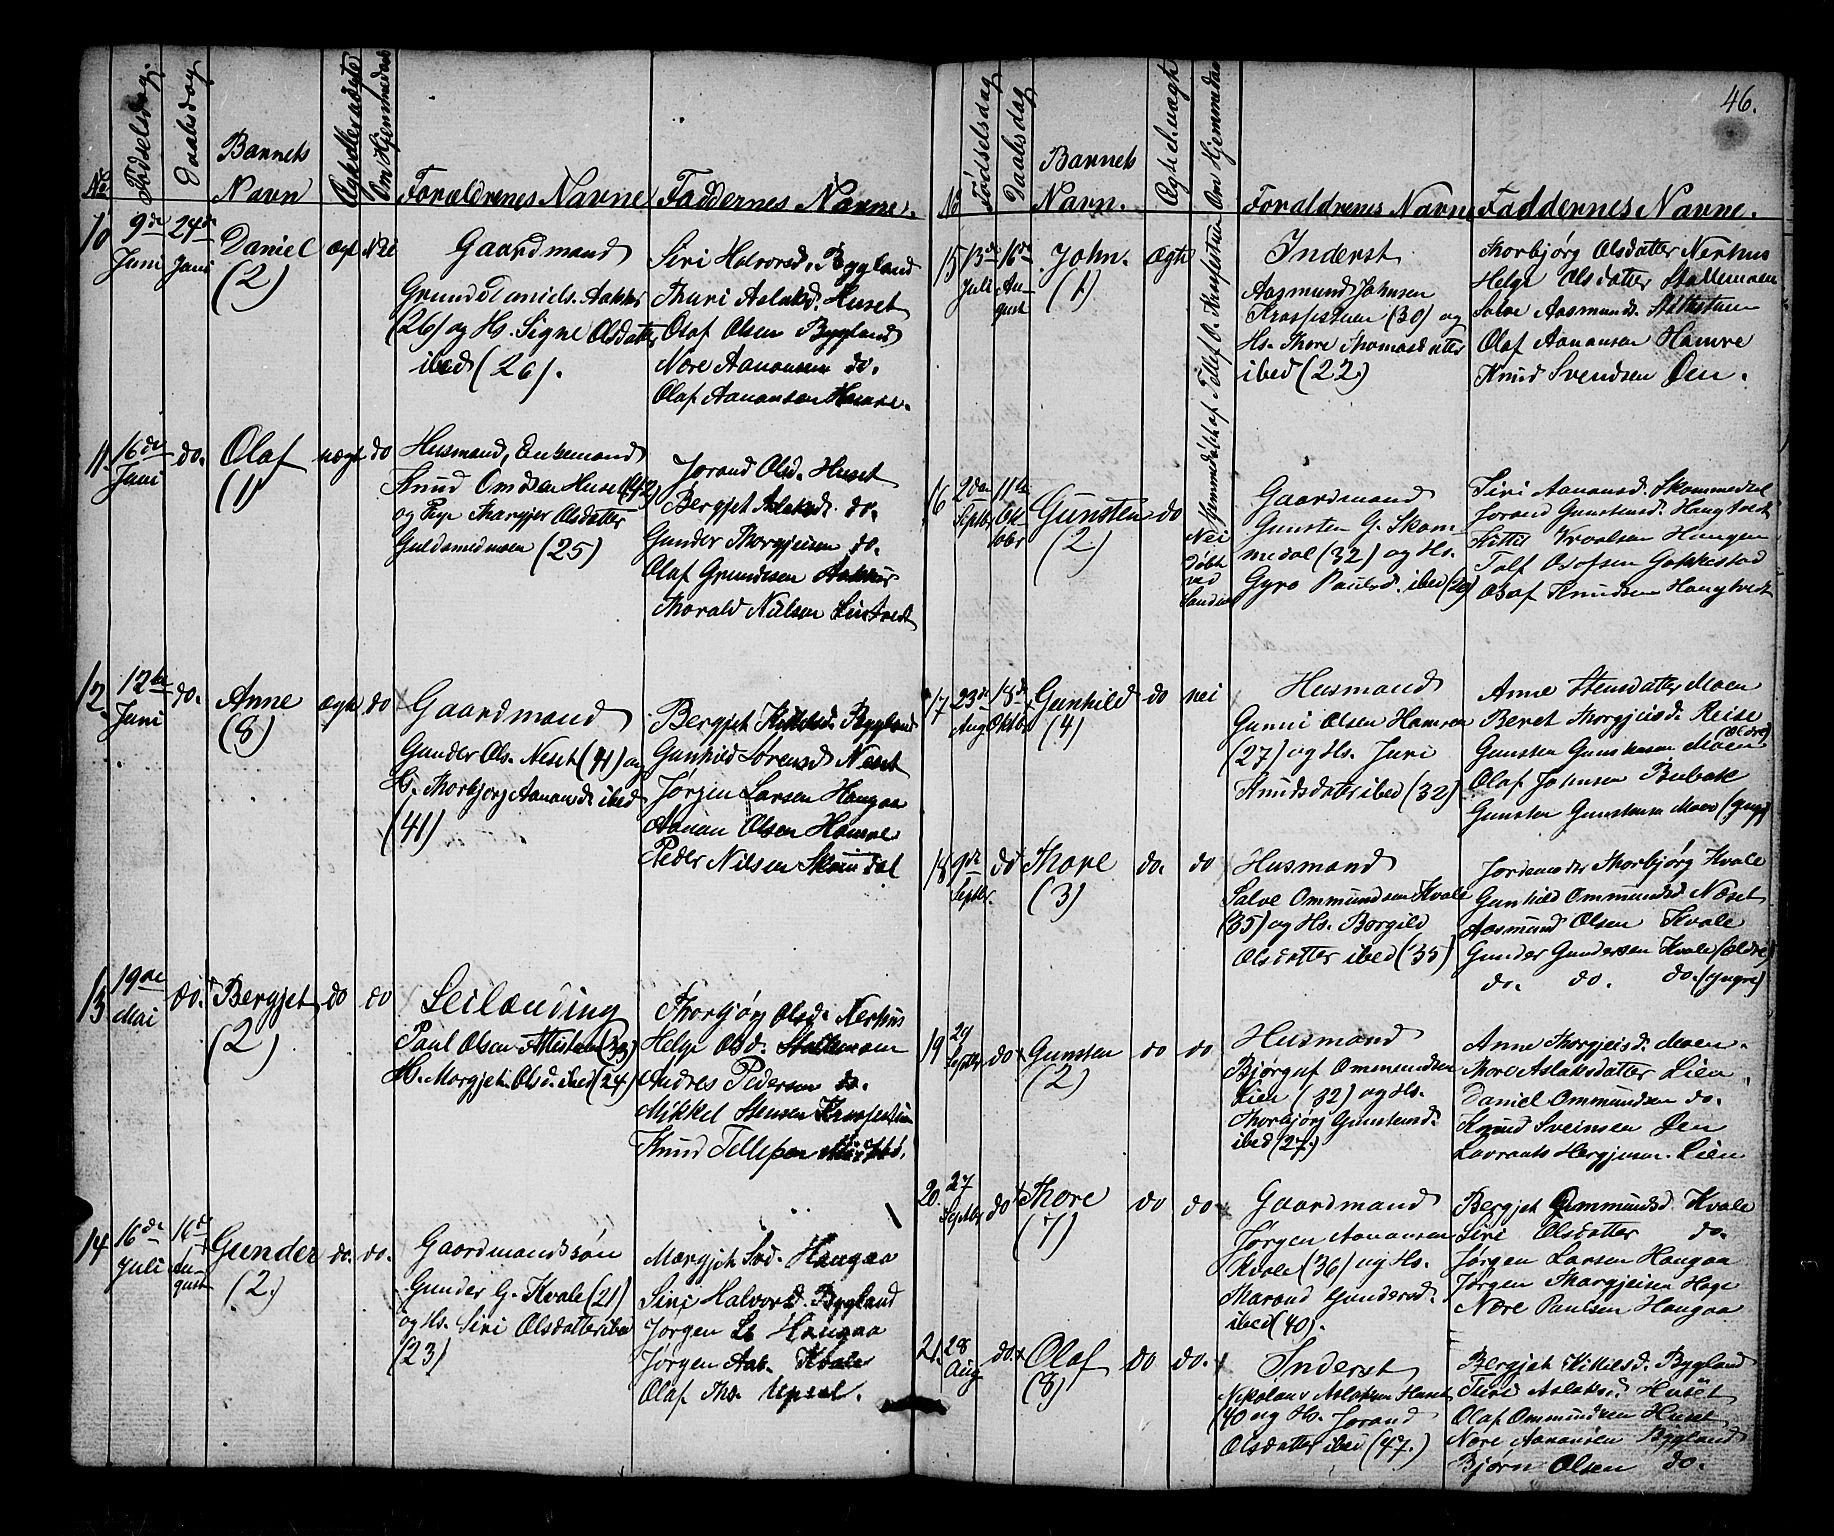 No
Fødselsdag.
Daabsdag
Barnets
Navn
Ægte eller uægte
Om Hjemmedøbt
Forældrenes Navne
Faddernes Navne.
10
9de
Juni
24de
Juni
Daniel
(2)
ægt
Nei
Gaardmand
Daniels.
(26) og Hs. Signe Olsdatter
ibed (26).
Siri Halvorsd. Bygland
Thuri Aslaksd. Huset
Olaf Olsen Bygland
Nore Aanansen do.
Olaf Aanansen Hamre.
11.
16de
Juni
do.
Olaf
(1)
uægt
do
Husmand, Enkemand
Knud Omdsen Huset (42)
og Pige Thargjer Olsdatter
Guldsmedmoen (25)
Jorand Olsd. Huset
Bergjet Aslaksd. do.
Gunder Thorgjeisen do.
Olaf Grundesen
Thorald Nilsen
12.
12te
Juni
do.
Anne
(8)
ægte
do
Gaardmand
Gunder Ols. Neset (41) og
H. Thorbjorg Aanansd. ibed
(41)
Bergjet Kittelsd. Bygland
Gunhild Sørensd. Neset
Jørgen Larsen Haugaa
Aanan Olsen Hamre
Peder Nilsen
13
19de
Mai
do.
Bergjet
(2)
do
do
Leilænding
Paul Olsen
Hs. Morgjet Olsd. ibed (24)
Thorbjørg Olsd. Nerhus
Helge Olsd. Stallemoen
Andres Pedersen do.
Mikkel Stensen
Knud Tellefsen
14
16de
Juli
16de
Au-
gust
Gunder
(2)
do.
do.
Gaardmandssøn
Gunder G. Kvale (21)
og Hs. Siri Olsdatter ibed
(23)
Margjet Haugaa
Siri Halvorsd. Bygland
Jørgen Ls Haugaa
Jørgen Aas. Kvale
Olaf Ths. Upsal.
46.
No
Fødselsdag
Daabsdag
Barnets
Navn.
Ægte el. uægte
Om Hjemmedøbt
Forældrenes Navne
Faddernes Navne.
15
13de
Juli
16de
Au-
gust
John.
(1)
Ægte
Hjemmedøbt af Tellef O.
Inderst
Aasmund Johnsen
(30) og
Hs. Thore Thomasdatter
ibed (22)
Thorbjörg Olsdatter Nerhus
Helge Olsdatter Stallemoen
Salve Aasmunds.
Olaf Aanansen Hamre
Knud Svendsen Øen.
16
2den
Septbr
11te
Ok-
tobr
Gunsten
(2)
do
Nei
Døbt
ved
Gaardmand
Gunsten G. Skom
medal (32) og Hs.
Gyro Paulsd. ibed
Siri Aanansd. Skommedal
Jorand Gunstensd. Haugtvedt
Kittil Kroalsen Haugen
Olaf Knudsen Haugtvedt
17
23de
Aug
18de
Oktbr
Gunhild
(4)
do
nei
Husmand
Gunni Olsen
(27) og Hs. Juri
Knudsdatter ibed (32)
Anne Stensdatter Moen
Beret Thorgjeisd. Reise
(ældre)
Gunsten Gunstensen Moen
Olaf Johnsen
Gunsten Gunstensen Moen (yngr)
18
9de
Septbr.
do
Thore
(3)
do.
do
Husmand
Salve Ommundsen Kvale
(35) og Hs. Borgild
Olsdatter ibed (35)
Thorbjörg Kvale
Gunhild Ommundsd. Næset
Aasmund Olsen Kvale
Gunder Gundersen Kvale (ældre)
do. do. do. (yngre)
19
29
Septbr
do
Gunsten
(2)
do
do
Husmand
Bjørguf Ommundsen
Lien (32) og Hs.
Thorbjörg Gunstensd.
ibed (27.)
Anne Thorgjeisd. Moen.
Thore Aslaksdatter Lien
Daniel Ommundsen do.
Knud Sveinsen Øen
Lavrants Lien
20.
27
Septbr
do
Thore
(7)
do
do.
Gaardmand
Jørgen Aanansen
Kvale (36) og Hs.
Tharand Gundersd.
ibed (40).
Bergjet Ommundsd. Kvale
Siri Olsdatter do.
Jørgen Larsen Haugaa
Jørgen
Nore Paulsen Haugaa
21.
28
Aug
do.
Olaf
(8)
do
do.
Inderst
Nikolaus Aslaksen Huset
(40 og Hs. Jorand
Olsdatter ibed (47.)
Bergjet Kittilsd. Bygland
Turid Aslaksd. Huset
Olaf Ommundsen Huset
Nore Aanansen Bygland
Bjørn Olsen do.